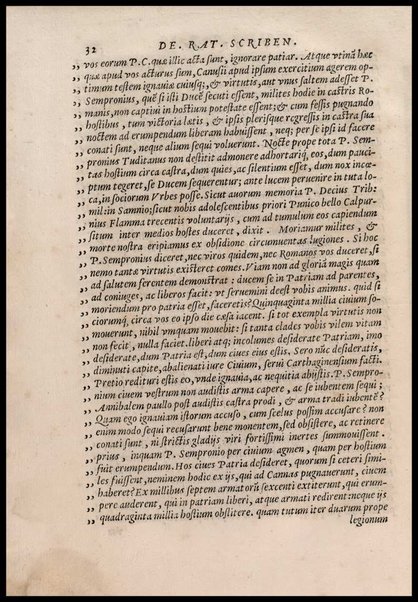 32 DE. RAT. SCRIBEN.
,, vos eorum P.C. quæ illic acta sunt, ignorare patiar. Atque vtinã hæc
,, quæ apud vos acturus sum, Canusii apud ipsum exercitium agerem op-
,, timum testem ignauiæ cuiusq;, & virtutis, aut vnus saltem adesset P.
,, Sempronius, quẽ si isti Ducẽ secuti essent, milites hodie in castris Ro-
,, manis, non captiui in hostium potestate essent; & cum fessis pugnando
,, hostibus, tum victoria lætis, & ipsis plerisque regressis in castra sua
,, noctem ad erumpendum liberam habuissent, neq; per se ipsi id facere
,, conati sunt, neque alium sequi voluerunt. Nocte prope tota P. Sem-
,, pronius Tuditanus non destitit admonere adhortariq; eos, dum pauci-
,, tas hostium circa castra, dum quies, ac silentium esset, dum nox incæ-
,, ptum tegeret, se Ducem sequerentur; ante lucem peruenire in tuta lo-
,, ca, in sociorum Vrbes posse. Sicut auorum memoria P. Decius Trib:
,, mil: in Samnio; sicut nobis adolescentibus priori Punico bello Calpur-
,, nius Flamma trecentis voluntarijs, cum ad tumulum eos capiendum
,, situm inter medios hostes duceret, dixit. Moriamur milites, &
,, morte nostra eripiamus ex obsidione circumuentas lugiones. Si hoc
,, P. Sempronius diceret, nec viros quidem, nec Romanos vos duceret, si
,, nemo tantæ virtutis existeret comes. Viam non ad gloriã magis quam
,, ad salutem ferentem demonstrat: ducem se in Patriam ad parentes,
,, ad coniuges, ac liberos facit: vt seruemini deest vobis animus. quid si
,, moriendum pro patria esset, faceretis? Quinquaginta millia ciuium so-
,, ciorumq; circa vos eo ipso die cæsa iacent. si tot exempla virtutis non
,, mouerunt, nihil vmquam mouebit: si tanta clades vobis vilem vitam
,, non fecit, nulla faciet. liberi atq; incolumes desiderate Patriam, imo
,, desiderate, dum Patria est, dum ciues eius estis. Sero nũc desideratis,
,, diminuti capite, abalienati iure Ciuium, serui Carthaginensium facti.
,, Pretio redituri estis eo, vnde ignauia, ac nequitia abijstis. P. Sempro-
,, nium ciuem vestrum non audistis arma capere, ac se iubentem sequi;
,, Annibalem paullo post audistis castra prodi, & arma tradi iubentẽ?
,, Quam ego ignauiam istorum accuso, cum scelus possim accusare? non
,, enim modo sequi recusarunt bene monentem, sed obsistere, ac retinere
,, conati sunt, ni strictis gladijs viri fortissimi inertes summouissent.
,, prius, inquam P. Sempronio per ciuium agmen, quam per hostium
,, fuit erumpendum. Hos ciues Patria desideret, quorum si ceteri simi-
,, les fuissent, neminem hodie ex ijs, qui ad Cannas pugnauerunt, ciuem
,, haberet? Ex millibus septem armatorũ sexcenti extiterunt, qui erum-
,, pere auderent, qui in patriam liberi, atque armati redirent neque ijs
,, quadraginta millia hostium obstitere. quam tutum iter duarum prope
legionum